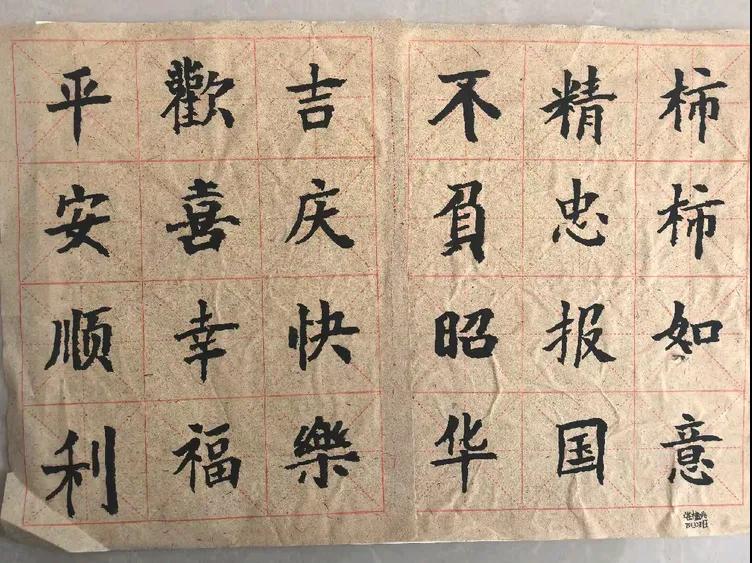 柿柿如意
精忠报国
不負昭华
吉庆快樂
歡喜幸福
平安顺利